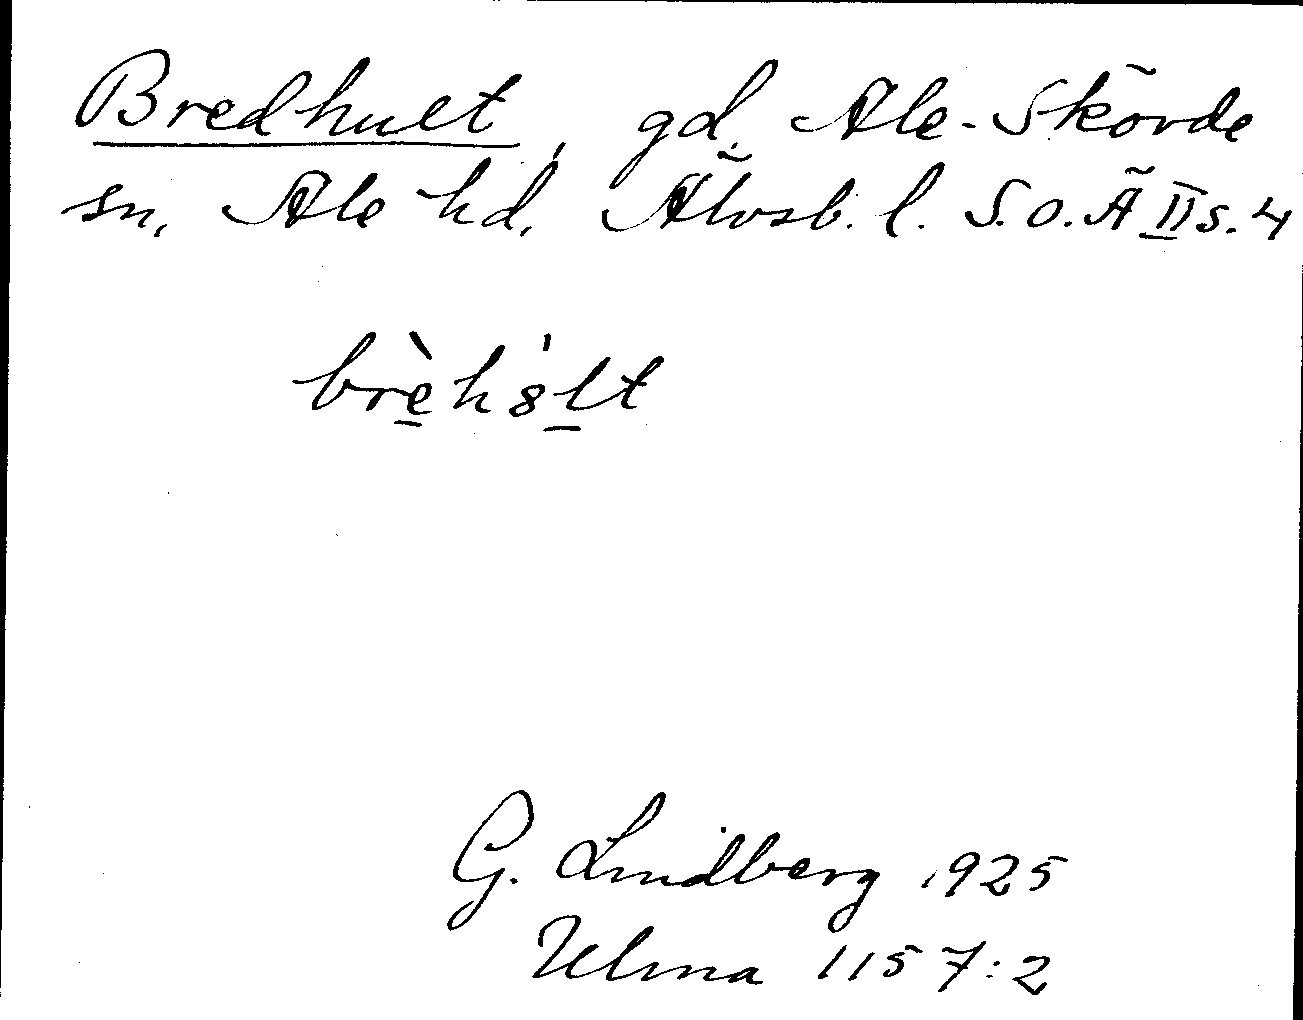 Bredhult, gd, Ale-Skövde
sn, Ale hd, Älvsb. l. S.O.Ä II s. 4
brèhȣ̍lt
G. Lindberg 1925
Ulma 1157:2